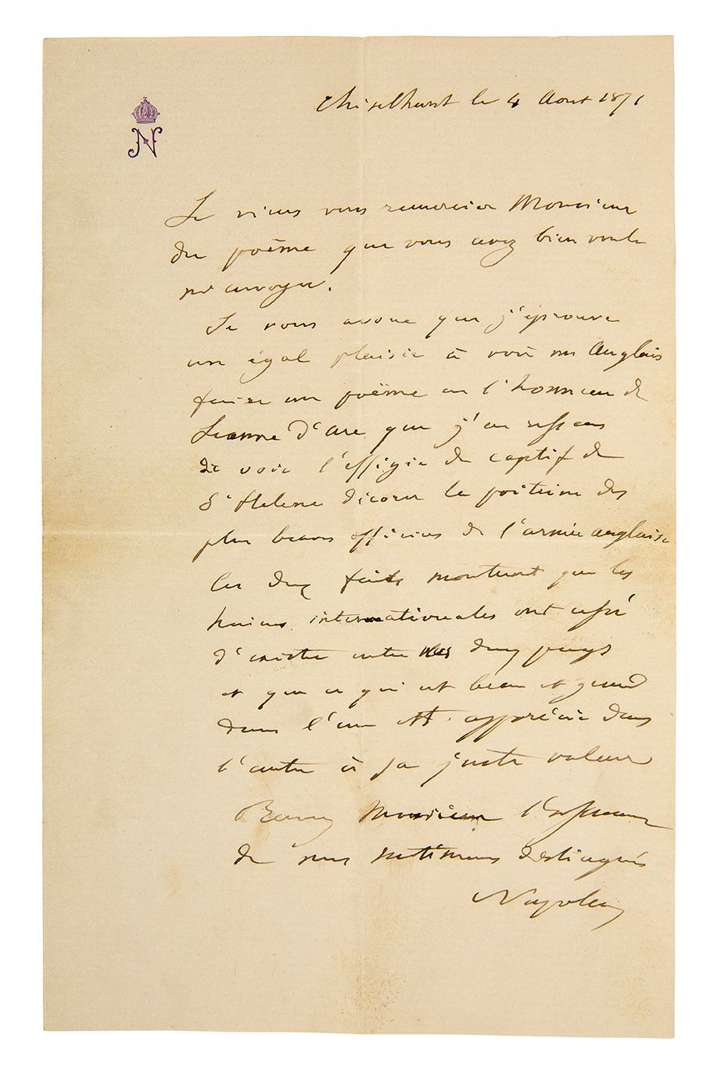 N
Chiselhurst le 4 Aout 1871
Je viens vous remercier Monsieur
du poëme que vous avez bien voulu
m'envoyer.
Je vous avoue que j'éprouve
un égal plaisir à voir un Anglais
faire un poëme en l'honneur de
Jeanne d'Arc que j'en ressens
de voir l'effigie du captif de
Ste Helene décorer la poitrine des
plus beaux officiers de l'armée anglaise
les deux faits montrent que les
haines internationales ont cessé
d'exister entre nos deux pays
et que ce qui est beau et grand
dans l'un est apprécié dans
l'autre à sa juste valeur
Recevez Monsieur l'assurance
de mes sentimens distingués
Napoleon